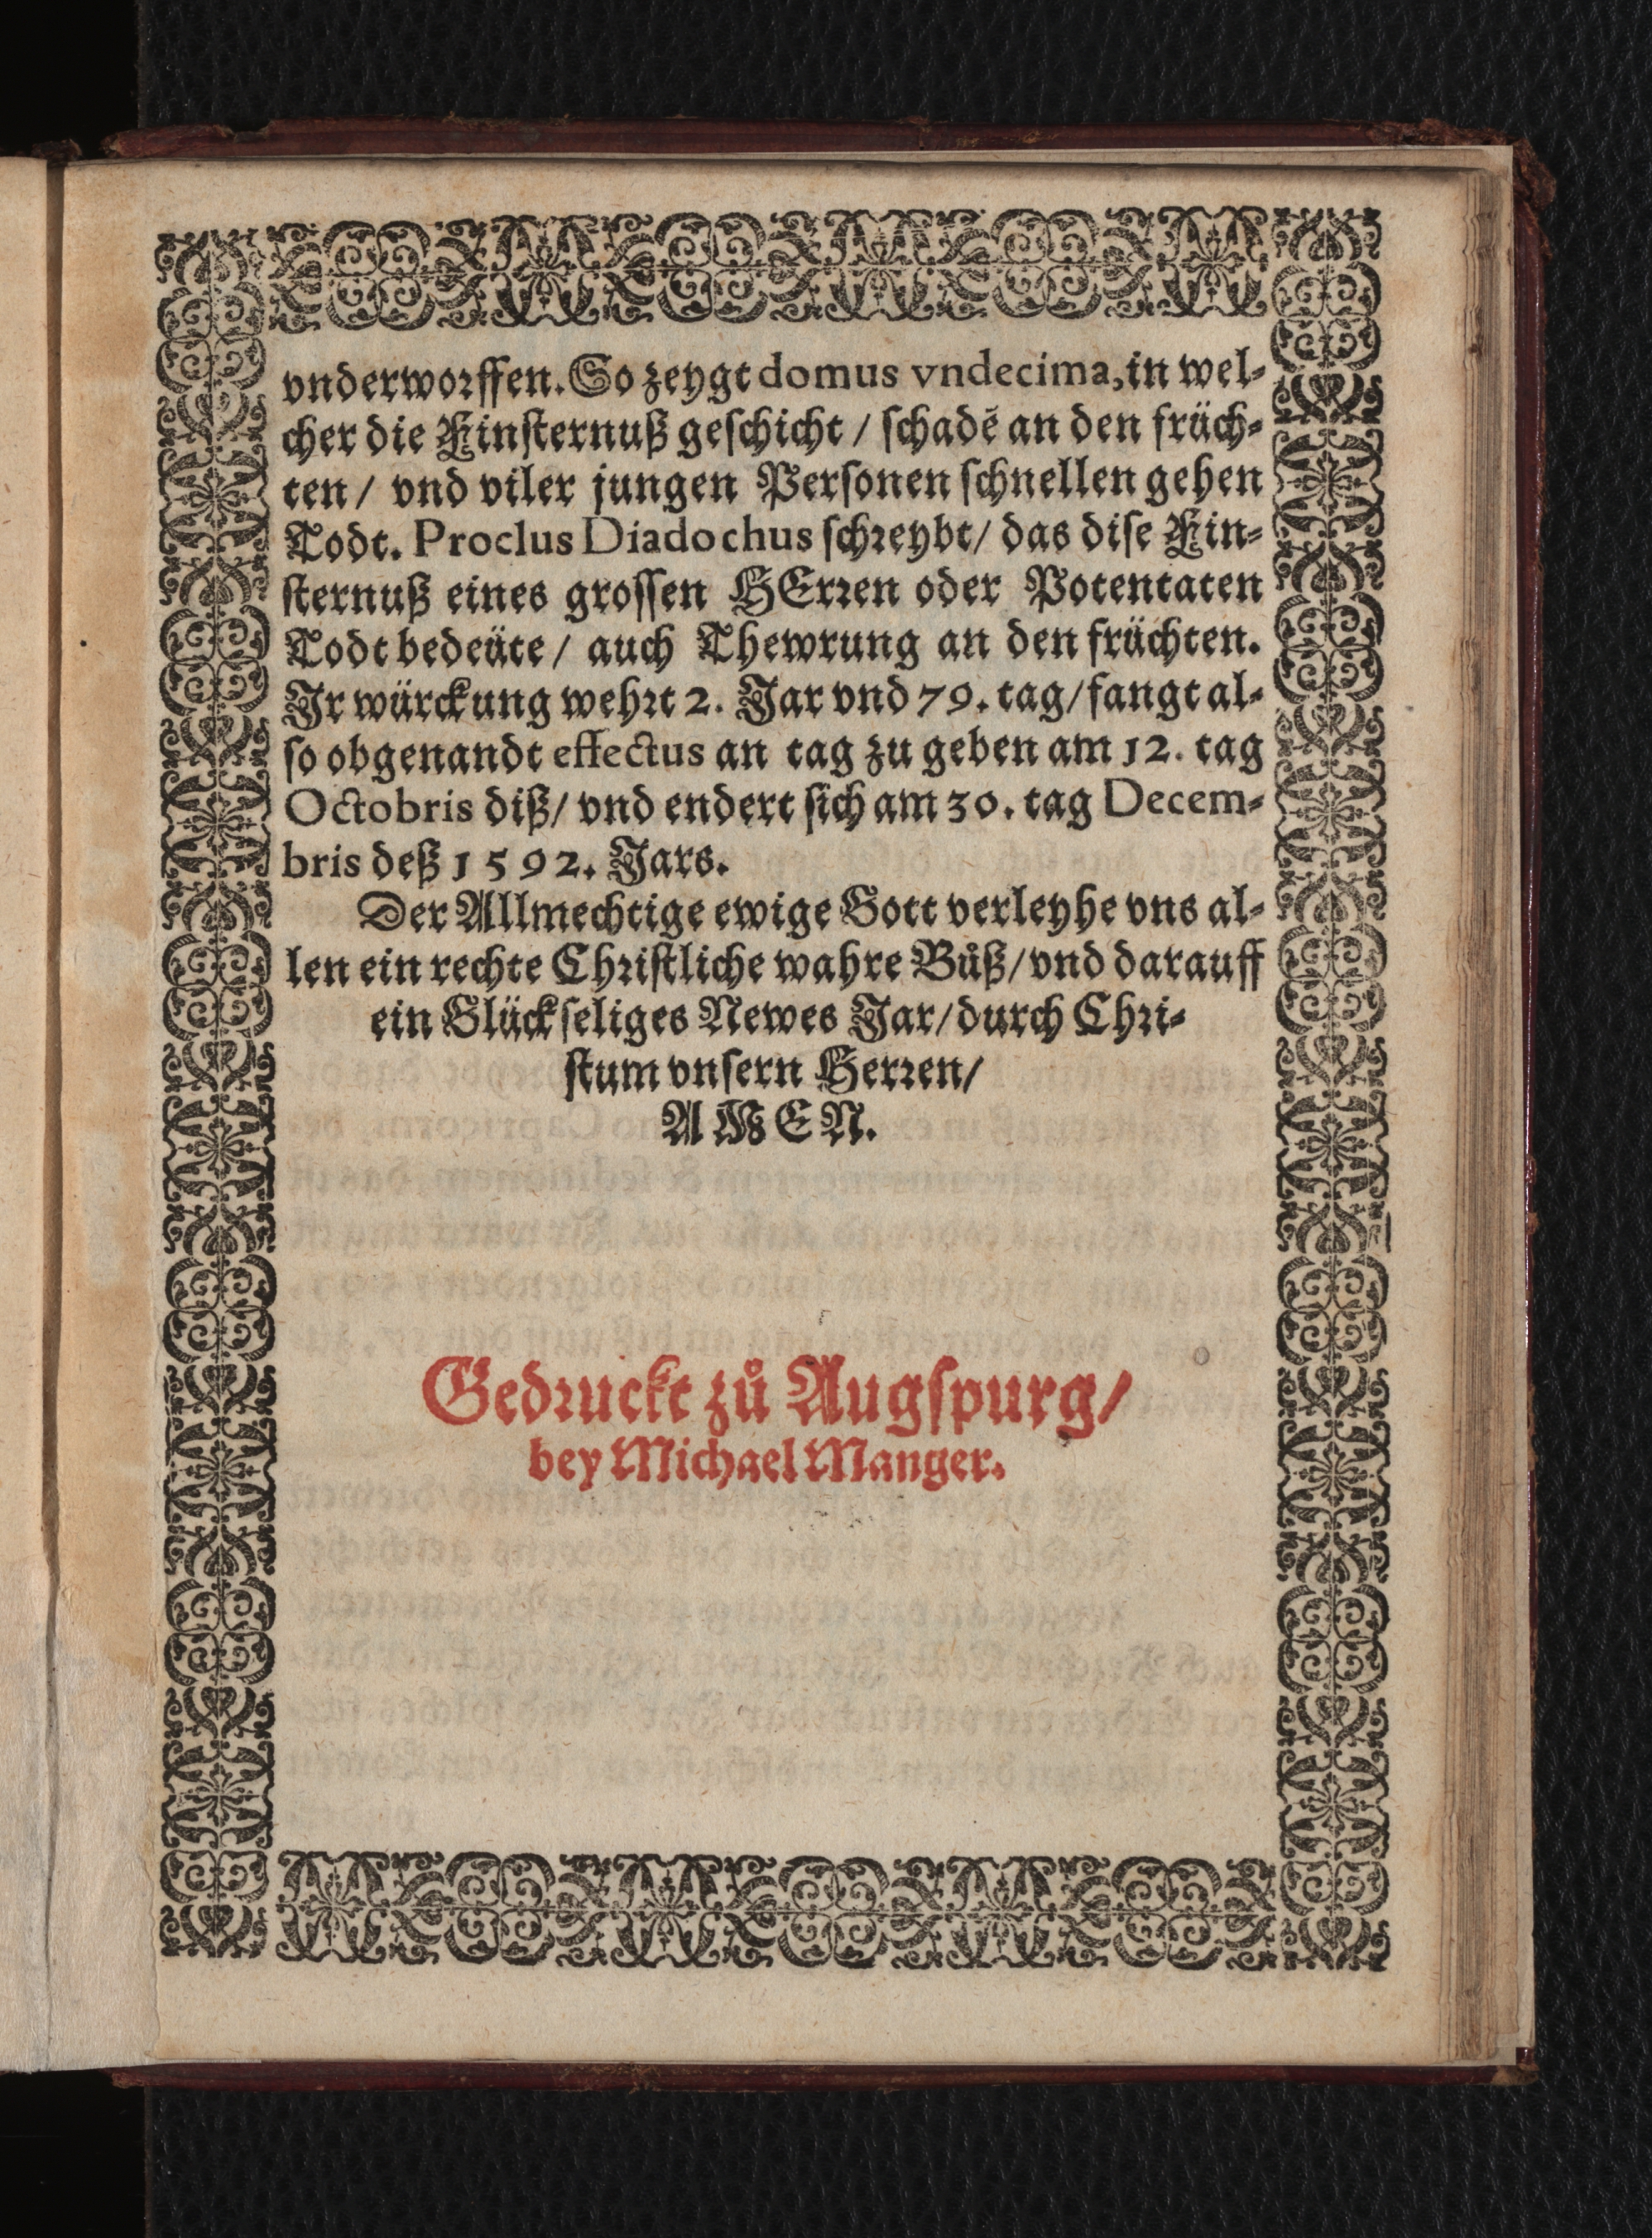 vnderworffen. So zeygt domus vndecima, in wel-
cher die Finsternuß geschicht / schadẽ an den früch-
ten / vnd viler jungen Personen schnellen gehen
Todt. Proclus Diadochus schreybt / das dise Fin-
sternuß eines grossen HErren oder Potentaten
Todt bedeüte / auch Thewrung an den früchten.
Ir würckung wehrt 2. Jar vnd 79. tag / fangt al-
so obgenandt effectus an tag zu geben am 12. tag
Octobris diß / vnd endert sich am 30. tag Decem-
bris deß 1592. Jars.
Der Allmechtige ewige Gott verleyhe vns al-
len ein rechte Christliche wahre Bůß / vnd darauff
ein Glückseliges Newes Jar / durch Chri-
stum vnsern Herren /
AMEN.
Gedruckt zů Augspurg /
bey Michael Manger.